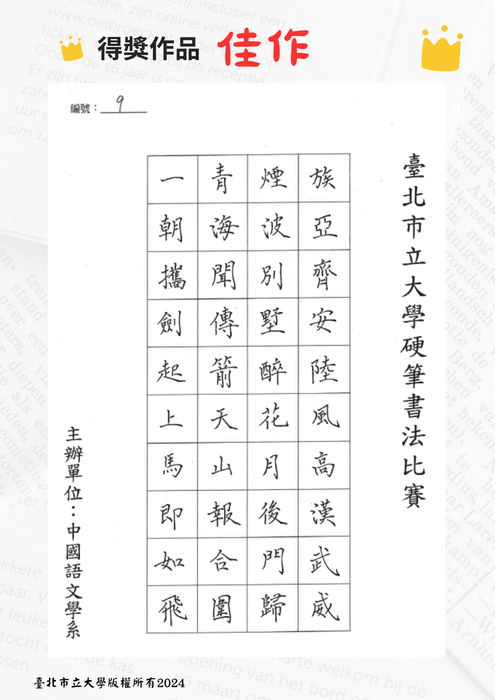 得獎作品 佳作
編號：9
臺北市立大學硬筆書法比賽
族亞齊安陸風高漢武威
煙波別墅醉花月後門歸
青海聞傳箭天山報合圍
一朝攜劍起上馬即如飛
主辦單位：中國語文學系
臺北市立大學版權所有2024